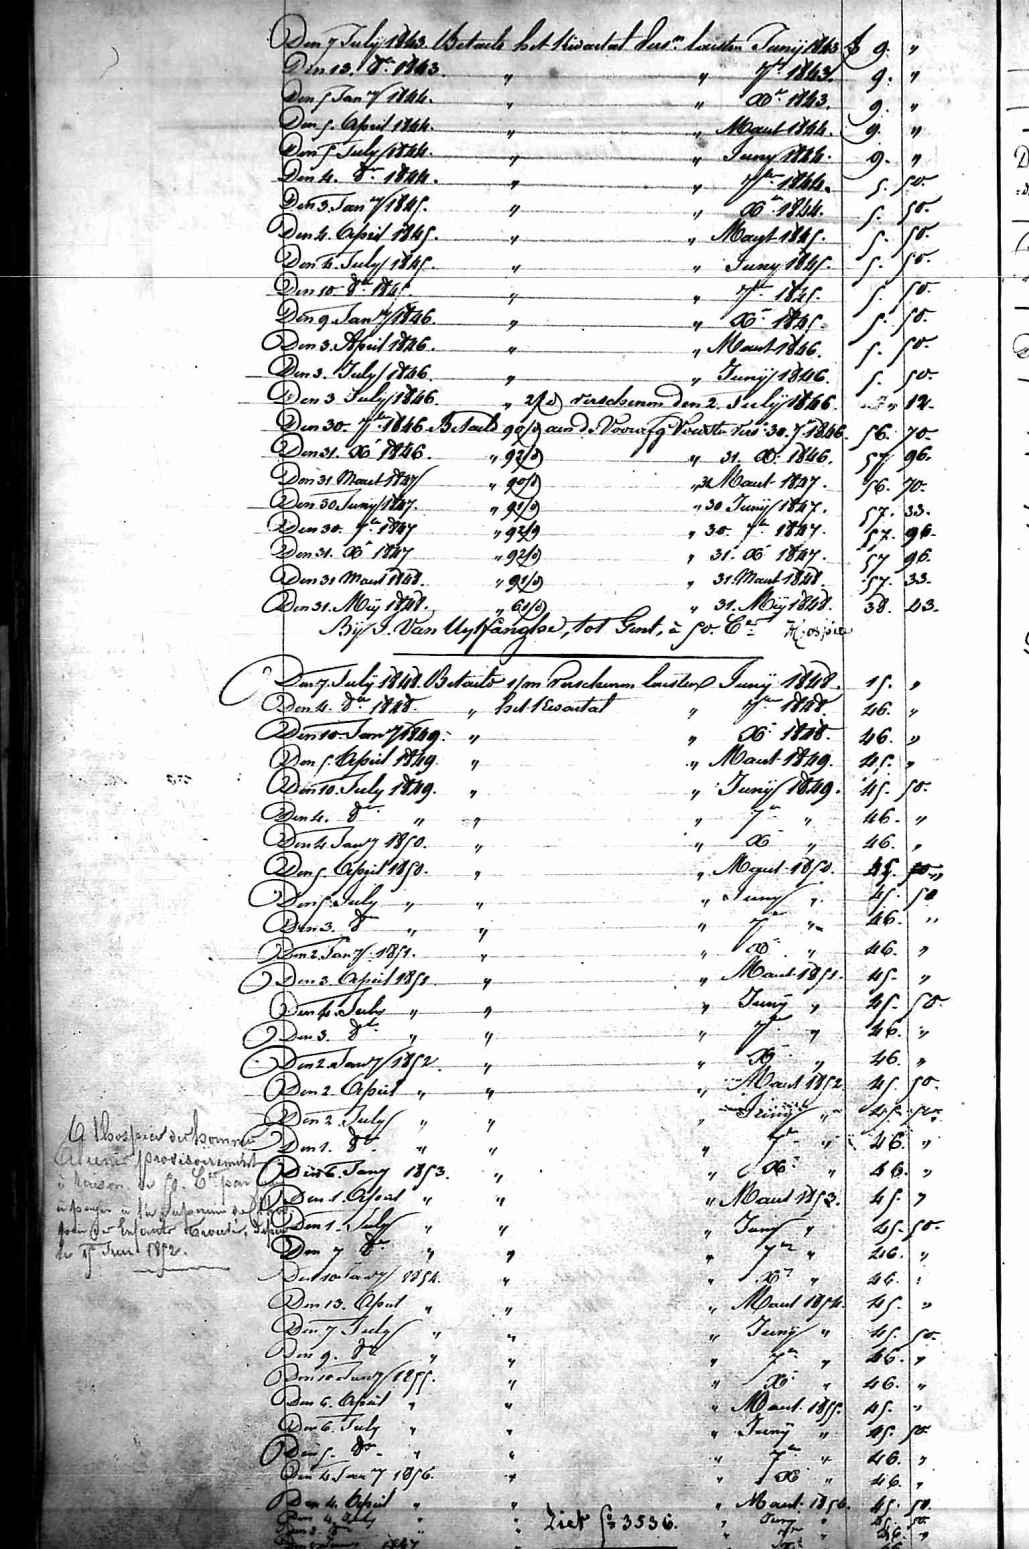 Den 7 July 1843. Betaelt het Kwartael Vers.en laesten Junij 1843 f 9. "
Den 13. 8.er 1843. " " 7.er 1843. 9. "
Den 5 Jan.y 1844. " " X.r 1843. 9. "
Den 5. April 1844. " " Maart 1844. 9. "
Den 5 July 1844. " " Juny 1844. 9. "
Den 4. 8.er 1844. " " 7.er 1844. 5. 50.
Den 3 Jan.y 1845. " " X.r 1844. 5. 50.
Den 4. April 1845. " " Maart 1845. 5. 50.
Den 4. July 1845. " " Juny 1845. 5. 50.
Den 10 8.er 1845. " " 7.er 1845. 5. 50.
Den 9 Jan.y 1846. " " X.r 1845. 5. 50.
Den 3. April 1846. " " Maart 1846. 5. 50.
Den 3. July 1846. " " Junij 1846. 5. 50.
Den 3 July 1846. " 2/d verschenen den 2. July 1846. " 12.
Den 30. 7.er 1846. Betaeld 90/d aen de 30. 7.r 1846. 56. 70.
Den 31. X.r 1846. " 92/d " 31. X.r 1846. 57. 96.
Den 31 Maart 1847 " 90/d " 31 Maart 1847. 56. 70.
Den 30 Juny 1847. " 91/d " 30 Junij 1847. 57. 33.
Den 30. 7.er 1847 " 92/d " 30. 7.er 1847. 57. 96.
Den 31. X.r 1847 " 92/d " 31. X.r 1847. 57 96.
Den 31 Maart 1848. " 91/d " 31. Maart 1848. 57. 33.
Den 31. Meij 1848. " 61/d " 31. Meij 1848. 38. 43.
Bij J. Van Uytfanghe, tot Gent, à 50. C.en
Den 7. Julij 1848. Betaelt 1/m verschenen laesten Junij 1848. 15. "
Den 4. 8.er 1848. " het Kwartael " 7.er 1848. 46. "
Den 10. Jan.y 1849. " " X.r 1848. 46. "
Den 5. April 1849. " " Maart 1849. 45. "
Den 10. July 1849. " " Junij 1849. 45. 50.
Den 4. 8.er " " " 7.er " 46. "
Den 4 Jan.y 1850. " " X.r " 46. "
Den 5. April 1850. " " Maart 1850. 45. "
Den 5. July " " " Juny " 45. 50
Den 3. 8.er " " " 7.er " 46. "
Den 2. Jan.y 1851. " " X.r " 46. "
Den 3. April 1851 " " Maart 1851. 45. "
Den 4. July " " " Junij " 45. 50.
Den 3. 8.er " " " 7.er " 46. "
Den 2. Jan.y 1852. " " X.r " 46. "
Den 2. April " " " Maart 1852 45. 50.
Den 2. July " " " Junij " 45. 50.
Den 1. 8.er " " " 7.er " 46. "
Den 6. Jany 1853. " " X.r " 46. "
Den 1. April " " " Maart 1853. 45. "
Den 1. July " " " Juny " 45. 50.
Den 7 8.er " " " 7.er " 46. "
Den 10 Jan.y 1854. " " X.r " 46. "
Den 13. April " " " Maart 1854. 45. "
Den 7 July " " " Juny " 45. 50.
Den 9. 8.er " " " 7.er " 46. "
Den 10 Jan.y 1855. " " X.r " 46. "
Den 6. April " " " Maart 1855. 45. "
Den 6. July " " " Junij " 45. 50.
Den 5. 8.er " " " 7.er " 46. "
Den 4. Jan.y 1856. " " X.r " 46. "
Den 4. April " " " Maart 1856. 45. 50.
Den 4. July " " " Juny " 45. 50.
Ziet f.o 3536.
A l'hospice des hommes
aliénés provisoirement
à raison de 50. C.es par
à payer à la Supérieure de l'hos-
pice des Enfants trouvés, depuis
le 15 Juin 1852.